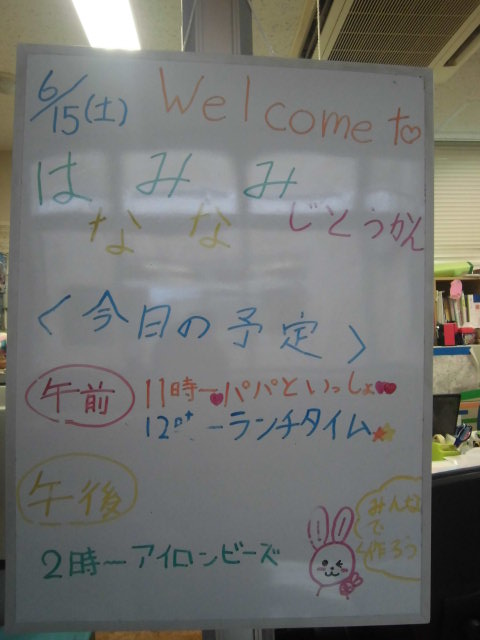 6/15(土) Welcome to
はなみなみ
じどうかん
<今日の予定>
午前 11時ーパパといっしょ
12時ーランチタイム
午後
2時ーアイロンビーズ
みんな
で
作ろう